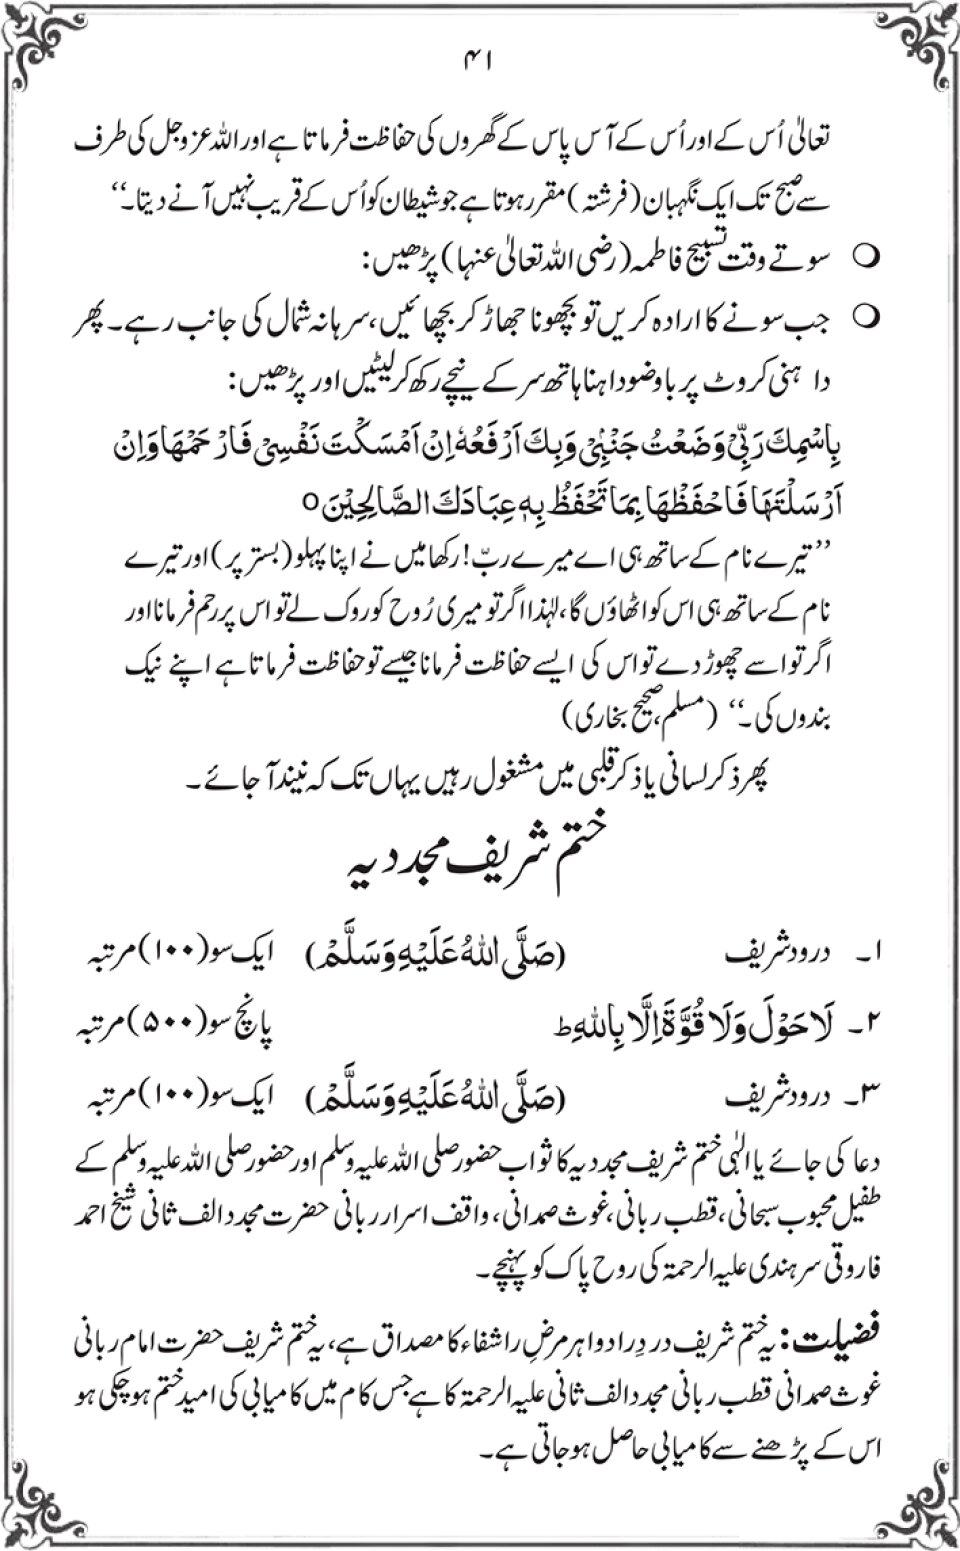 ۴۱
تعالیٰ اُس کے اور اُس کے آس پاس کے گھروں کی حفاظت فرماتا ہے اور اللہ عزوجل کی طرف
سے صبح تک ایک نگہبان (فرشتہ) مقرر ہوتا ہے جو شیطان کو اُس کے قریب نہیں آنے دیتا۔‘‘
❍ سوتے وقت تسبیح فاطمہ (رضی اللہ تعالیٰ عنہا) پڑھیں:
❍ جب سونے کا ارادہ کریں تو بچھونا جھاڑ کر بچھائیں، سرہانہ شمال کی جانب رہے۔ پھر
داہنی کروٹ پر باوضو داہنا ہاتھ سر کے نیچے رکھ کر لیٹیں اور پڑھیں:
بِاسْمِكَ رَبِّيْ وَضَعْتُ جَنْبِيْ وَبِكَ اَرْفَعُهٗ اِنْ اَمْسَكْتَ نَفْسِيْ فَارْحَمْهَا وَاِنْ
اَرْسَلْتَهَا فَاحْفَظْهَا بِمَا تَحْفَظُ بِهٖ عِبَادَكَ الصَّالِحِيْنَ ○
’’تیرے نام کے ساتھ ہی اے میرے ربّ! رکھا میں نے اپنا پہلو (بستر پر) اور تیرے
نام کے ساتھ ہی اس کو اٹھاؤں گا، لہٰذا اگر تو میری رُوح کو روک لے تو اس پر رحم فرمانا اور
اگر تو اسے چھوڑ دے تو اس کی ایسے حفاظت فرمانا جیسے تو حفاظت فرماتا ہے اپنے نیک
بندوں کی۔‘‘ (مسلم، صحیح بخاری)
پھر ذکر لسانی یا ذکر قلبی میں مشغول رہیں یہاں تک کہ نیند آ جائے۔
ختم شریف مجددیہ
۱۔ درود شریف (صَلَّى اللهُ عَلَيْهِ وَسَلَّمْ) ایک سو (۱۰۰) مرتبہ
۲۔ لَا حَوْلَ وَلَا قُوَّةَ اِلَّا بِاللهِ ط پانچ سو (۵۰۰) مرتبہ
۳۔ درود شریف (صَلَّى اللهُ عَلَيْهِ وَسَلَّمْ) ایک سو (۱۰۰) مرتبہ
دعا کی جائے یا الٰہی ختم شریف مجددیہ کا ثواب حضور صلی اللہ علیہ وسلم اور حضور صلی اللہ علیہ وسلم کے
طفیل محبوب سبحانی، قطب ربانی، غوث صمدانی، واقف اسرار ربانی حضرت مجدد الف ثانی شیخ احمد
فاروقی سرہندی علیہ الرحمۃ کی روح پاک کو پہنچے۔
فضیلت: یہ ختم شریف درد را دوا ہر مرضِ را شفاء کا مصداق ہے، یہ ختم شریف حضرت امام ربانی
غوث صمدانی قطب ربانی مجدد الف ثانی علیہ الرحمۃ کا ہے جس کام میں کامیابی کی امید ختم ہو چکی ہو
اس کے پڑھنے سے کامیابی حاصل ہو جاتی ہے۔